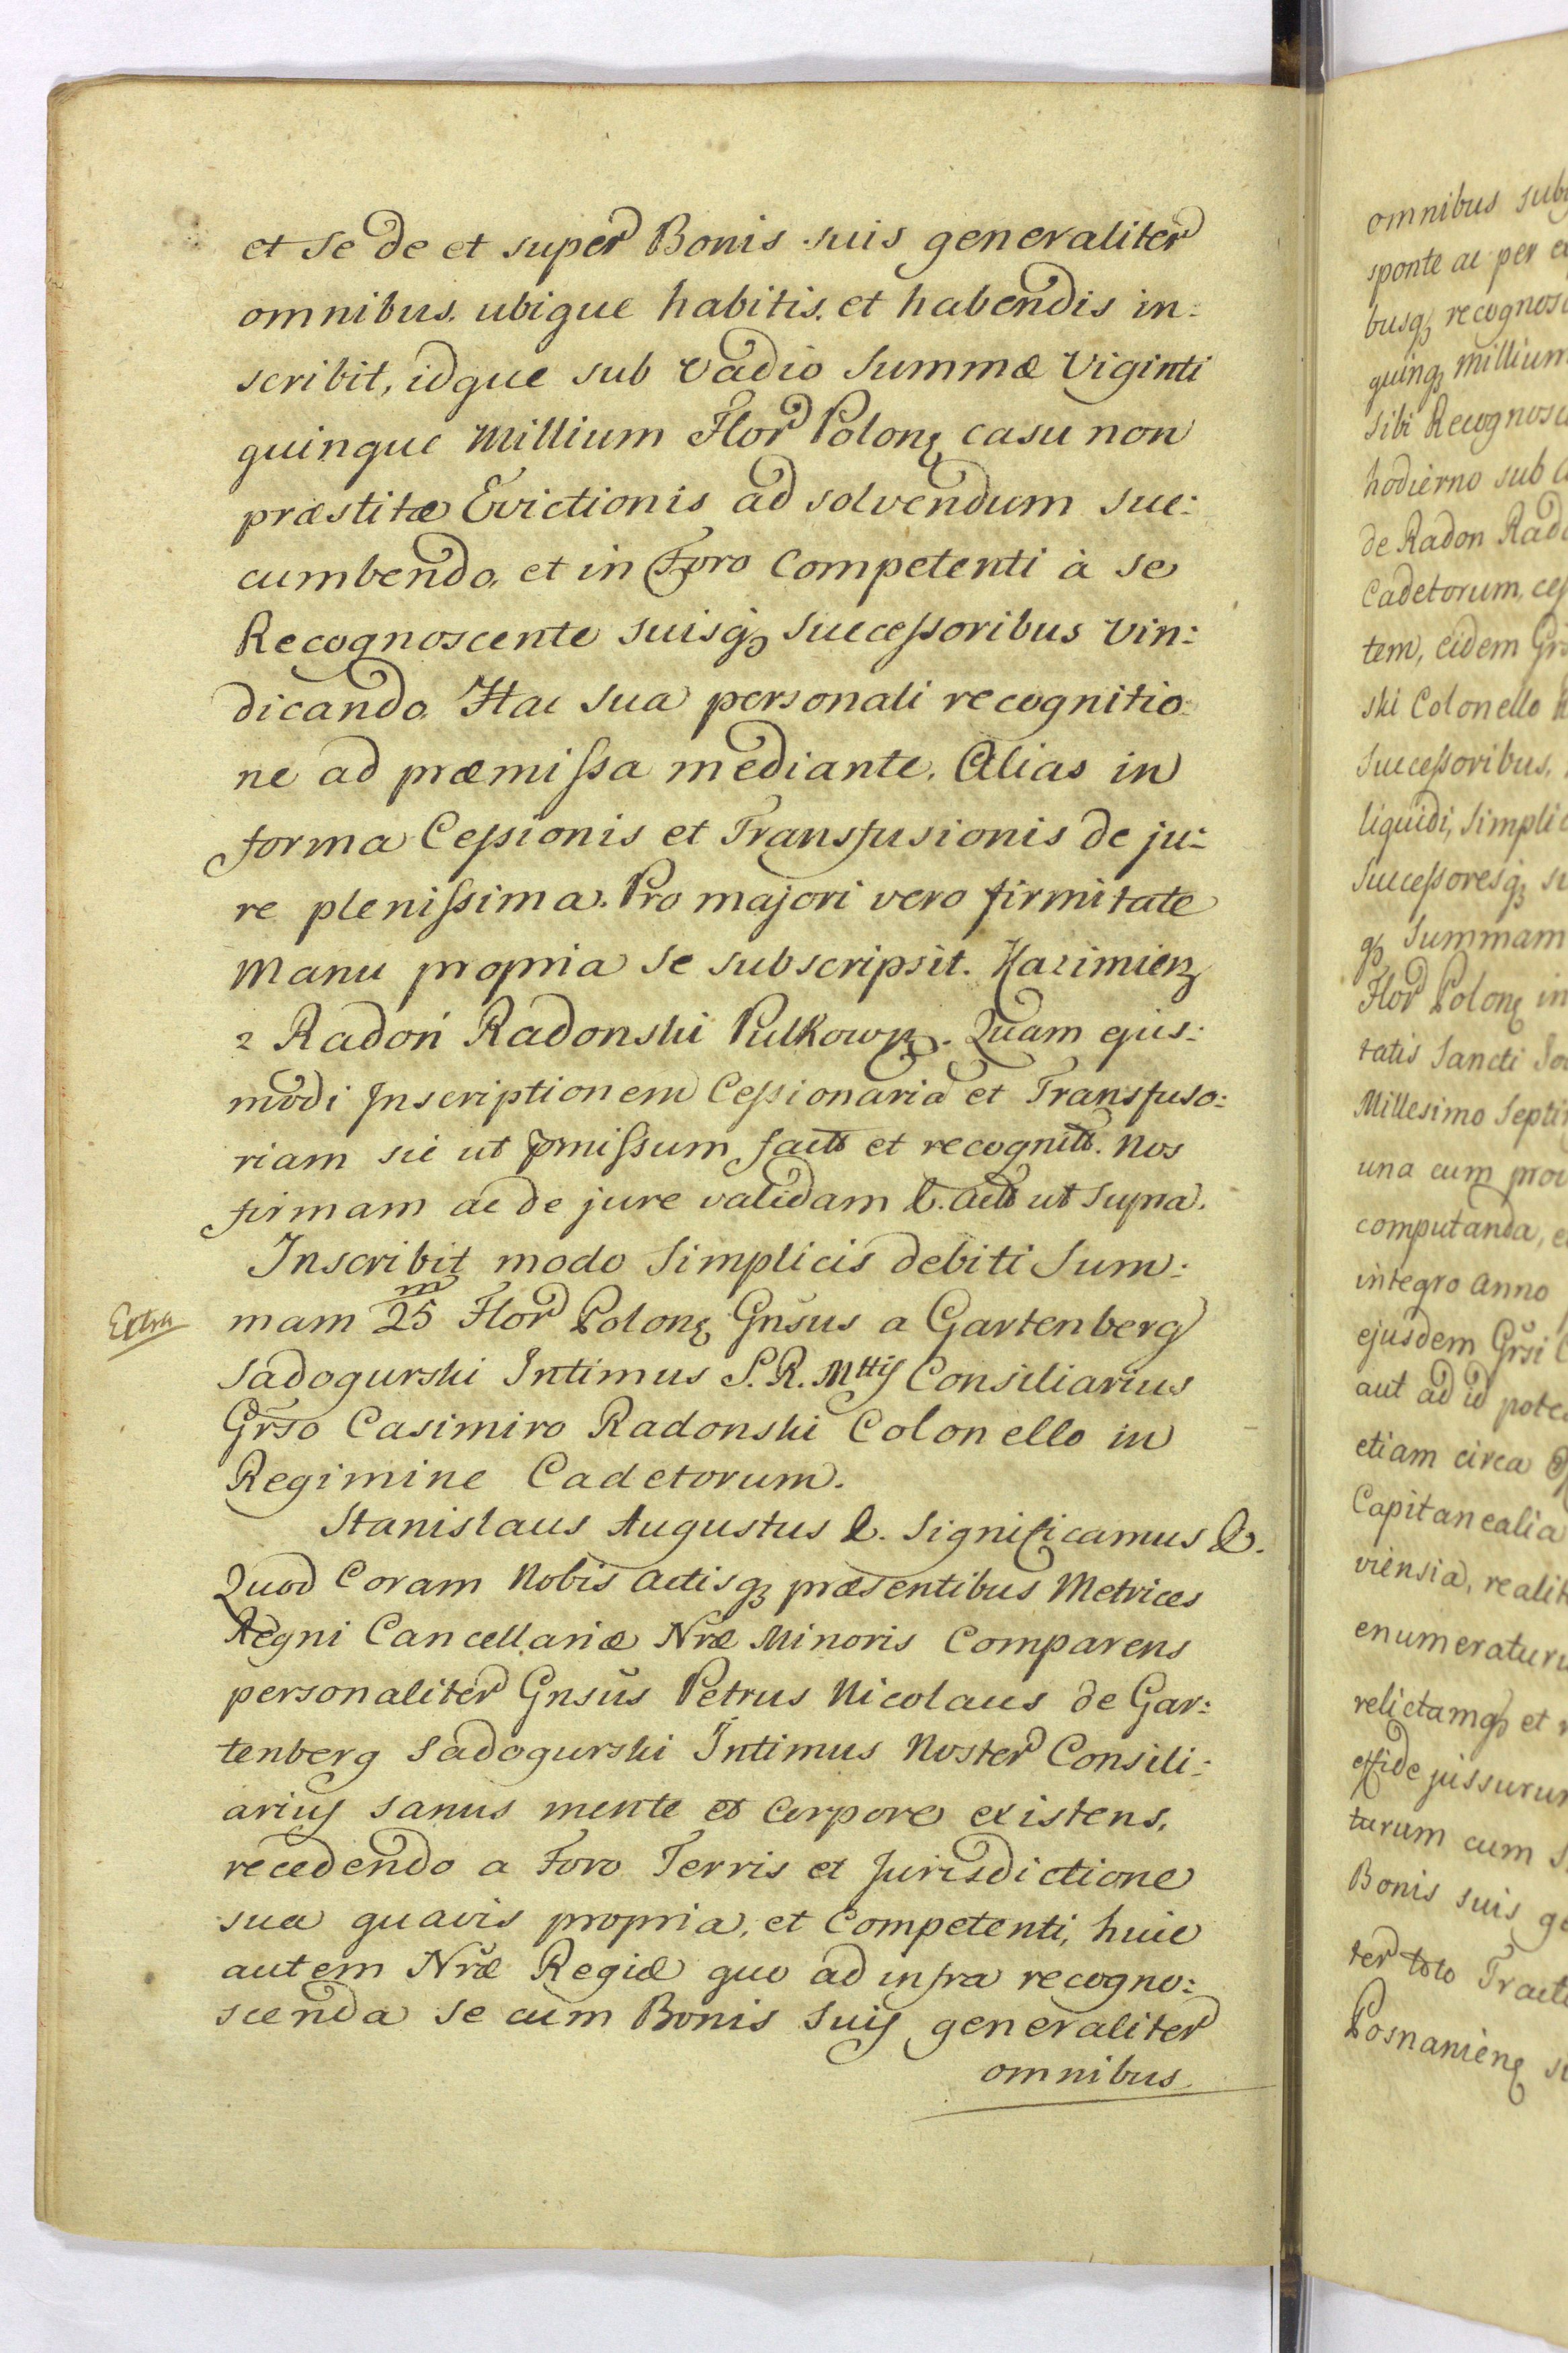 et se de et super Bonis suis generaliter
omnibus. ubique habitis. et habendis in:
scribit, idque sub Vadio Summæ Viginti
quinque Millium Flor Polonę casu non
præstitæ Evictionis ad solvendum suc:
cumbendo, et in Foro Competenti à se
Recognoscente suisqȝ Succeſsoribus vin:
dicando. Hac sua personali recognitio:
ne ad præmiſsa mediante. Alias in
forma Ceſsionis et Transfusionis de ju:
re pleniſsima. Pro majori vero firmitate
Manu propria se subscripsit. Kazimierz
z Radoń Radonski Pulkown. Quam ejus:
modi Inscriptionem Ceſsionaria et Transfuso:
riam sic ut pmiſsum factt et recognitt. Nos
firmam ac de jure validam &. actt ut supra.
Inscribit modo Simplicis debiti Sum:
Extra
mam 25 m Flor Polonę Gnsus a Gartenberg
Sadogurski Intimus S. R. Mttis Consiliarius
Grso Casimiro Radonski Colonello in
Regimine Cadetorum.
Stanislaus Augustus &. Significamus &.
Quod Coram Nobis Actisqȝ præsentibus Metrices
Regni Cancellariæ Nræ Minoris Comparens
personaliter Gnsus Petrus Nicolaus de Gar:
tenberg Sadogurski Intimus Noster Consili:
arius sanus mente et Corpore existens,
recedendo a Foro Terris et Jurisdictione
sua quavis propria, et Competenti, huic
autem Nræ Regiæ quo ad infra recogno:
scenda se cum Bonis suis generaliter
omnibus
omnibus sub
sponte ac per e
busqȝ recognos
quinqȝ millium
Sibi Recognos
hodierno sub
de Radon Rad
Cadetorum, ceſ
tem, eidem Grs
ski Colonello
Succeſsoribus.
liquidi, Simpli
Succeſsoresqȝ su
qȝ Summam
Flor Polonę in
tatis Sancti Jo
Millesimo Septi
una cum pro
computanda, e
integro Anno
ejusdem Grsi
aut ad id pote
etiam circa
Capitanealia
viensia, realit
enumeratur
relictamqȝ et
effide jussurum
turum cum
Bonis suis ge
ter toto Tract
Posnanienę